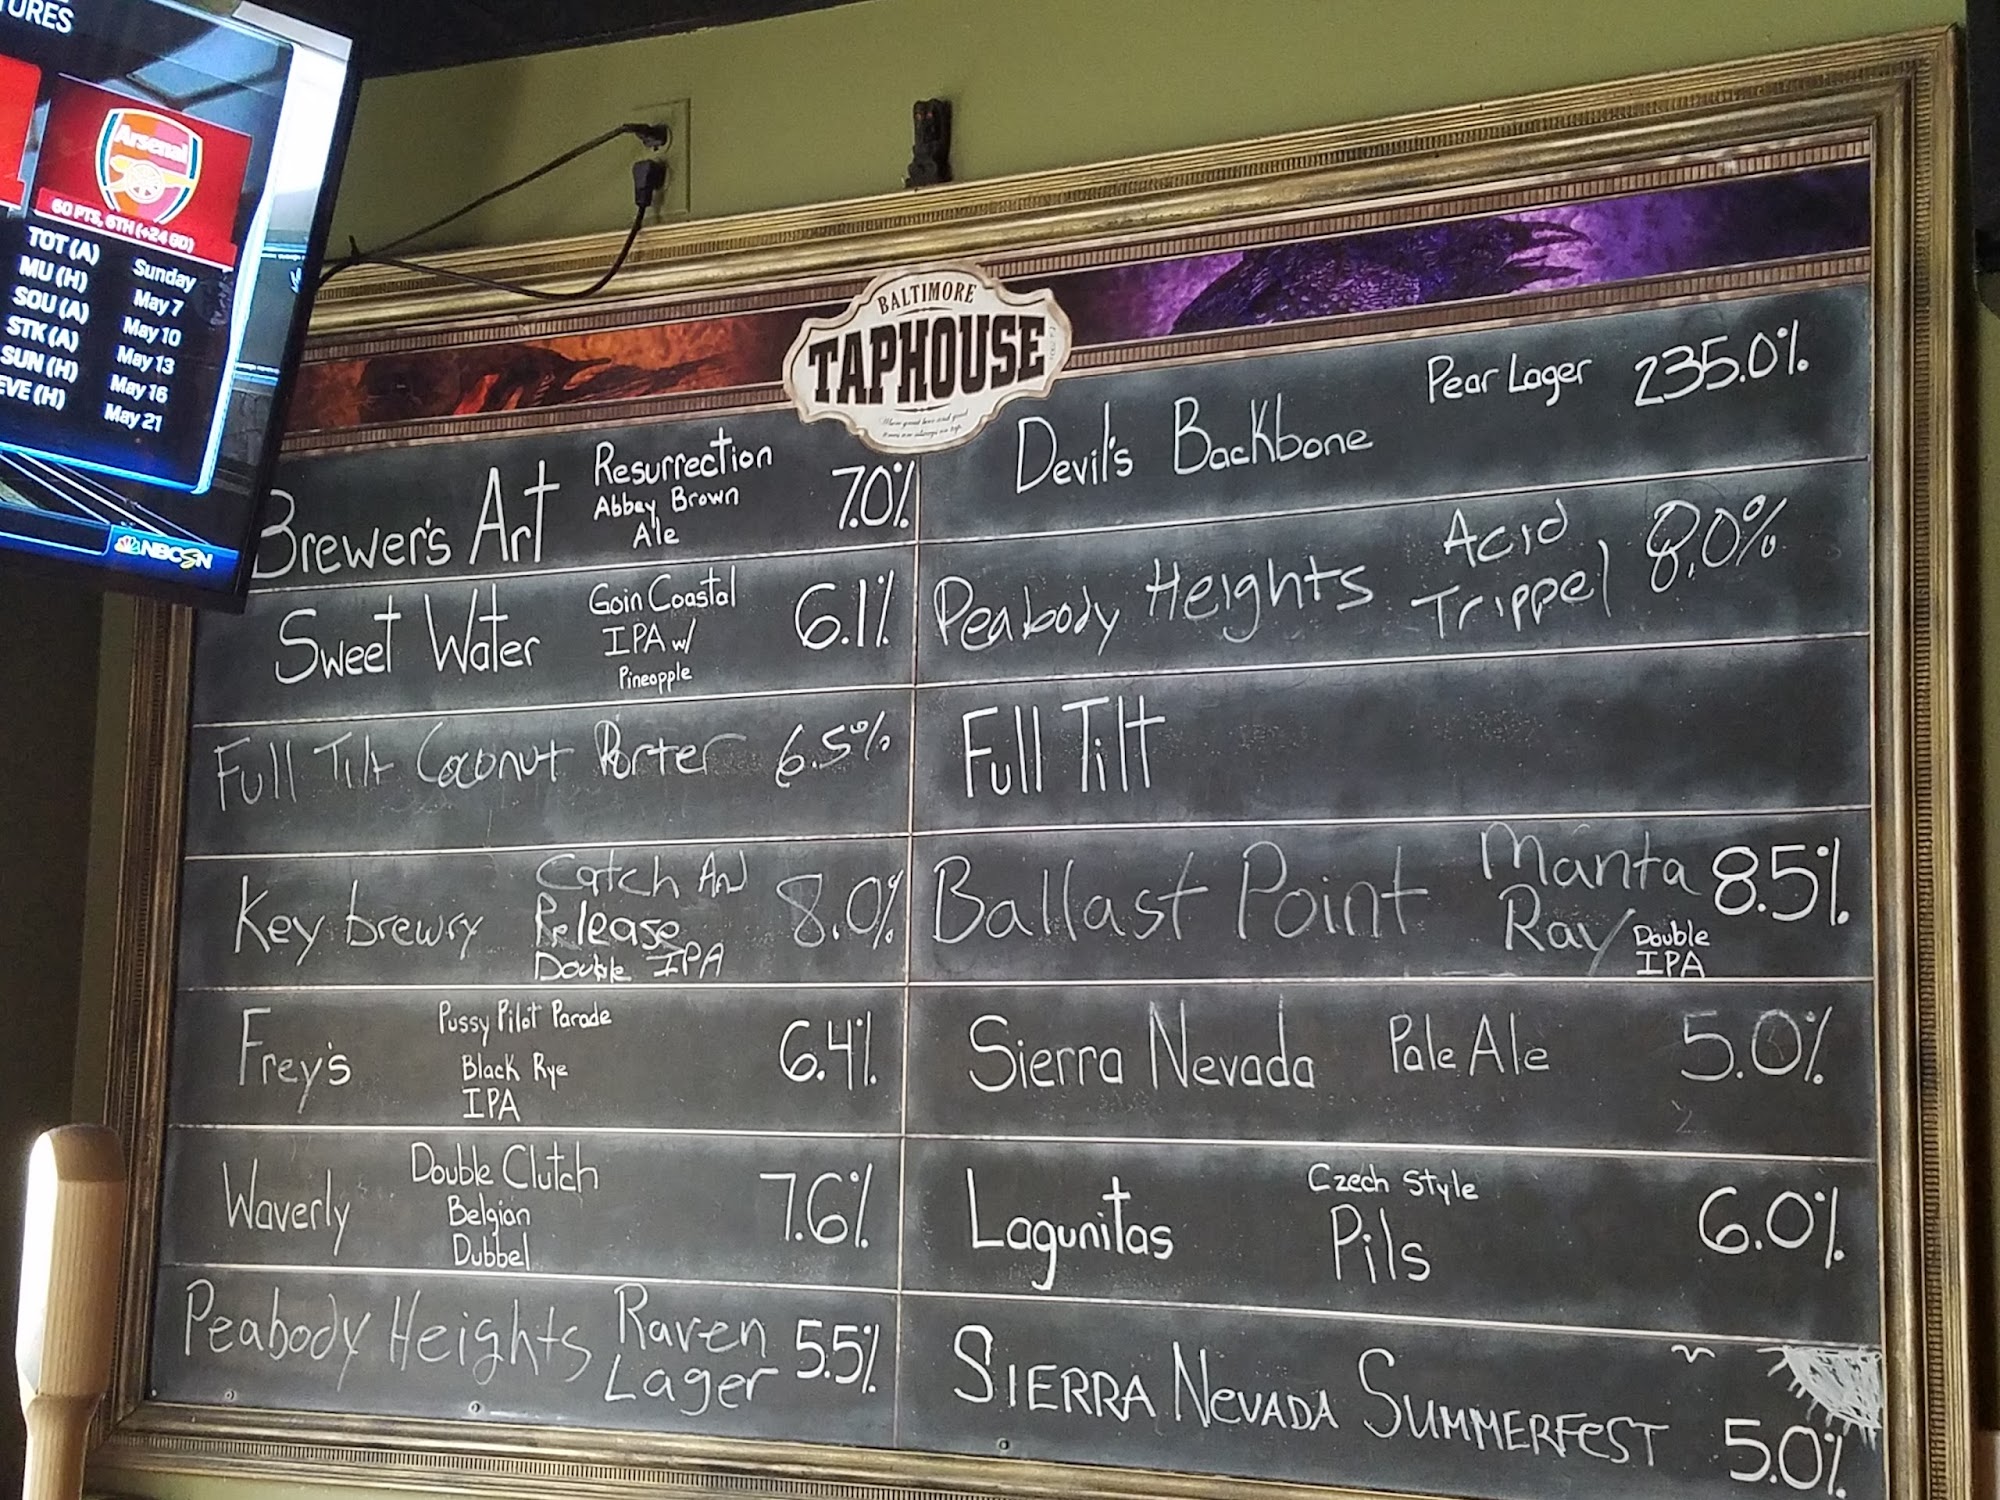 TURES
Arsenal
60 PTS, 6TH (+24 GD)
TOT (A) Sunday
MU (H) May 7
SOU (A) May 10
STK (A) May 13
SUN (H) May 16
EVE (H) May 21
NBCSN
BALTIMORE
TAPHOUSE
When great beer and good
times are always on tap.
Brewer's Art Resurrection 7.0%
Abbey Brown
Ale
Sweet Water Goin Coastal 6.1%
IPA w/
Pineapple
Full Tilt Coconut Porter 6.5%
Key brewry Catch And 8.0%
Release
Double IPA
Frey's Pussy Pilot Parade 6.4%
Black Rye
IPA
Waverly Double Clutch 7.6%
Belgian
Dubbel
Peabody Heights Raven 5.5%
Lager
Devil's Backbone Pear Lager 235.0%
Peabody Heights Acid 8.0%
Trippel
Full Tilt
Ballast Point Manta 8.5%
Ray Double
IPA
Sierra Nevada Pale Ale 5.0%
Lagunitas Czech Style 6.0%
Pils
SIERRA NEVADA SUMMERFEST 5.0%